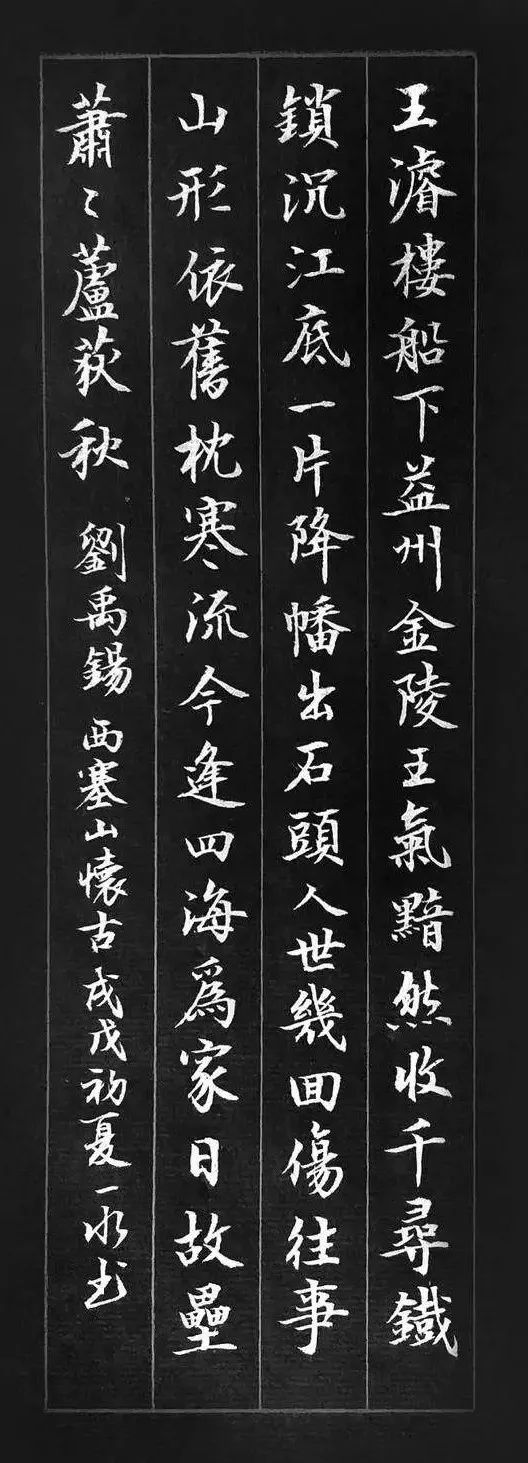 王濬樓船下益州金陵王氣黯然收千尋鐵
鎖沉江底一片降幡出石頭人世幾回傷往事
山形依舊枕寒流今逢四海為家日故壘
蕭〻蘆荻秋 劉禹錫 西塞山懷古 戊戌初夏一水书